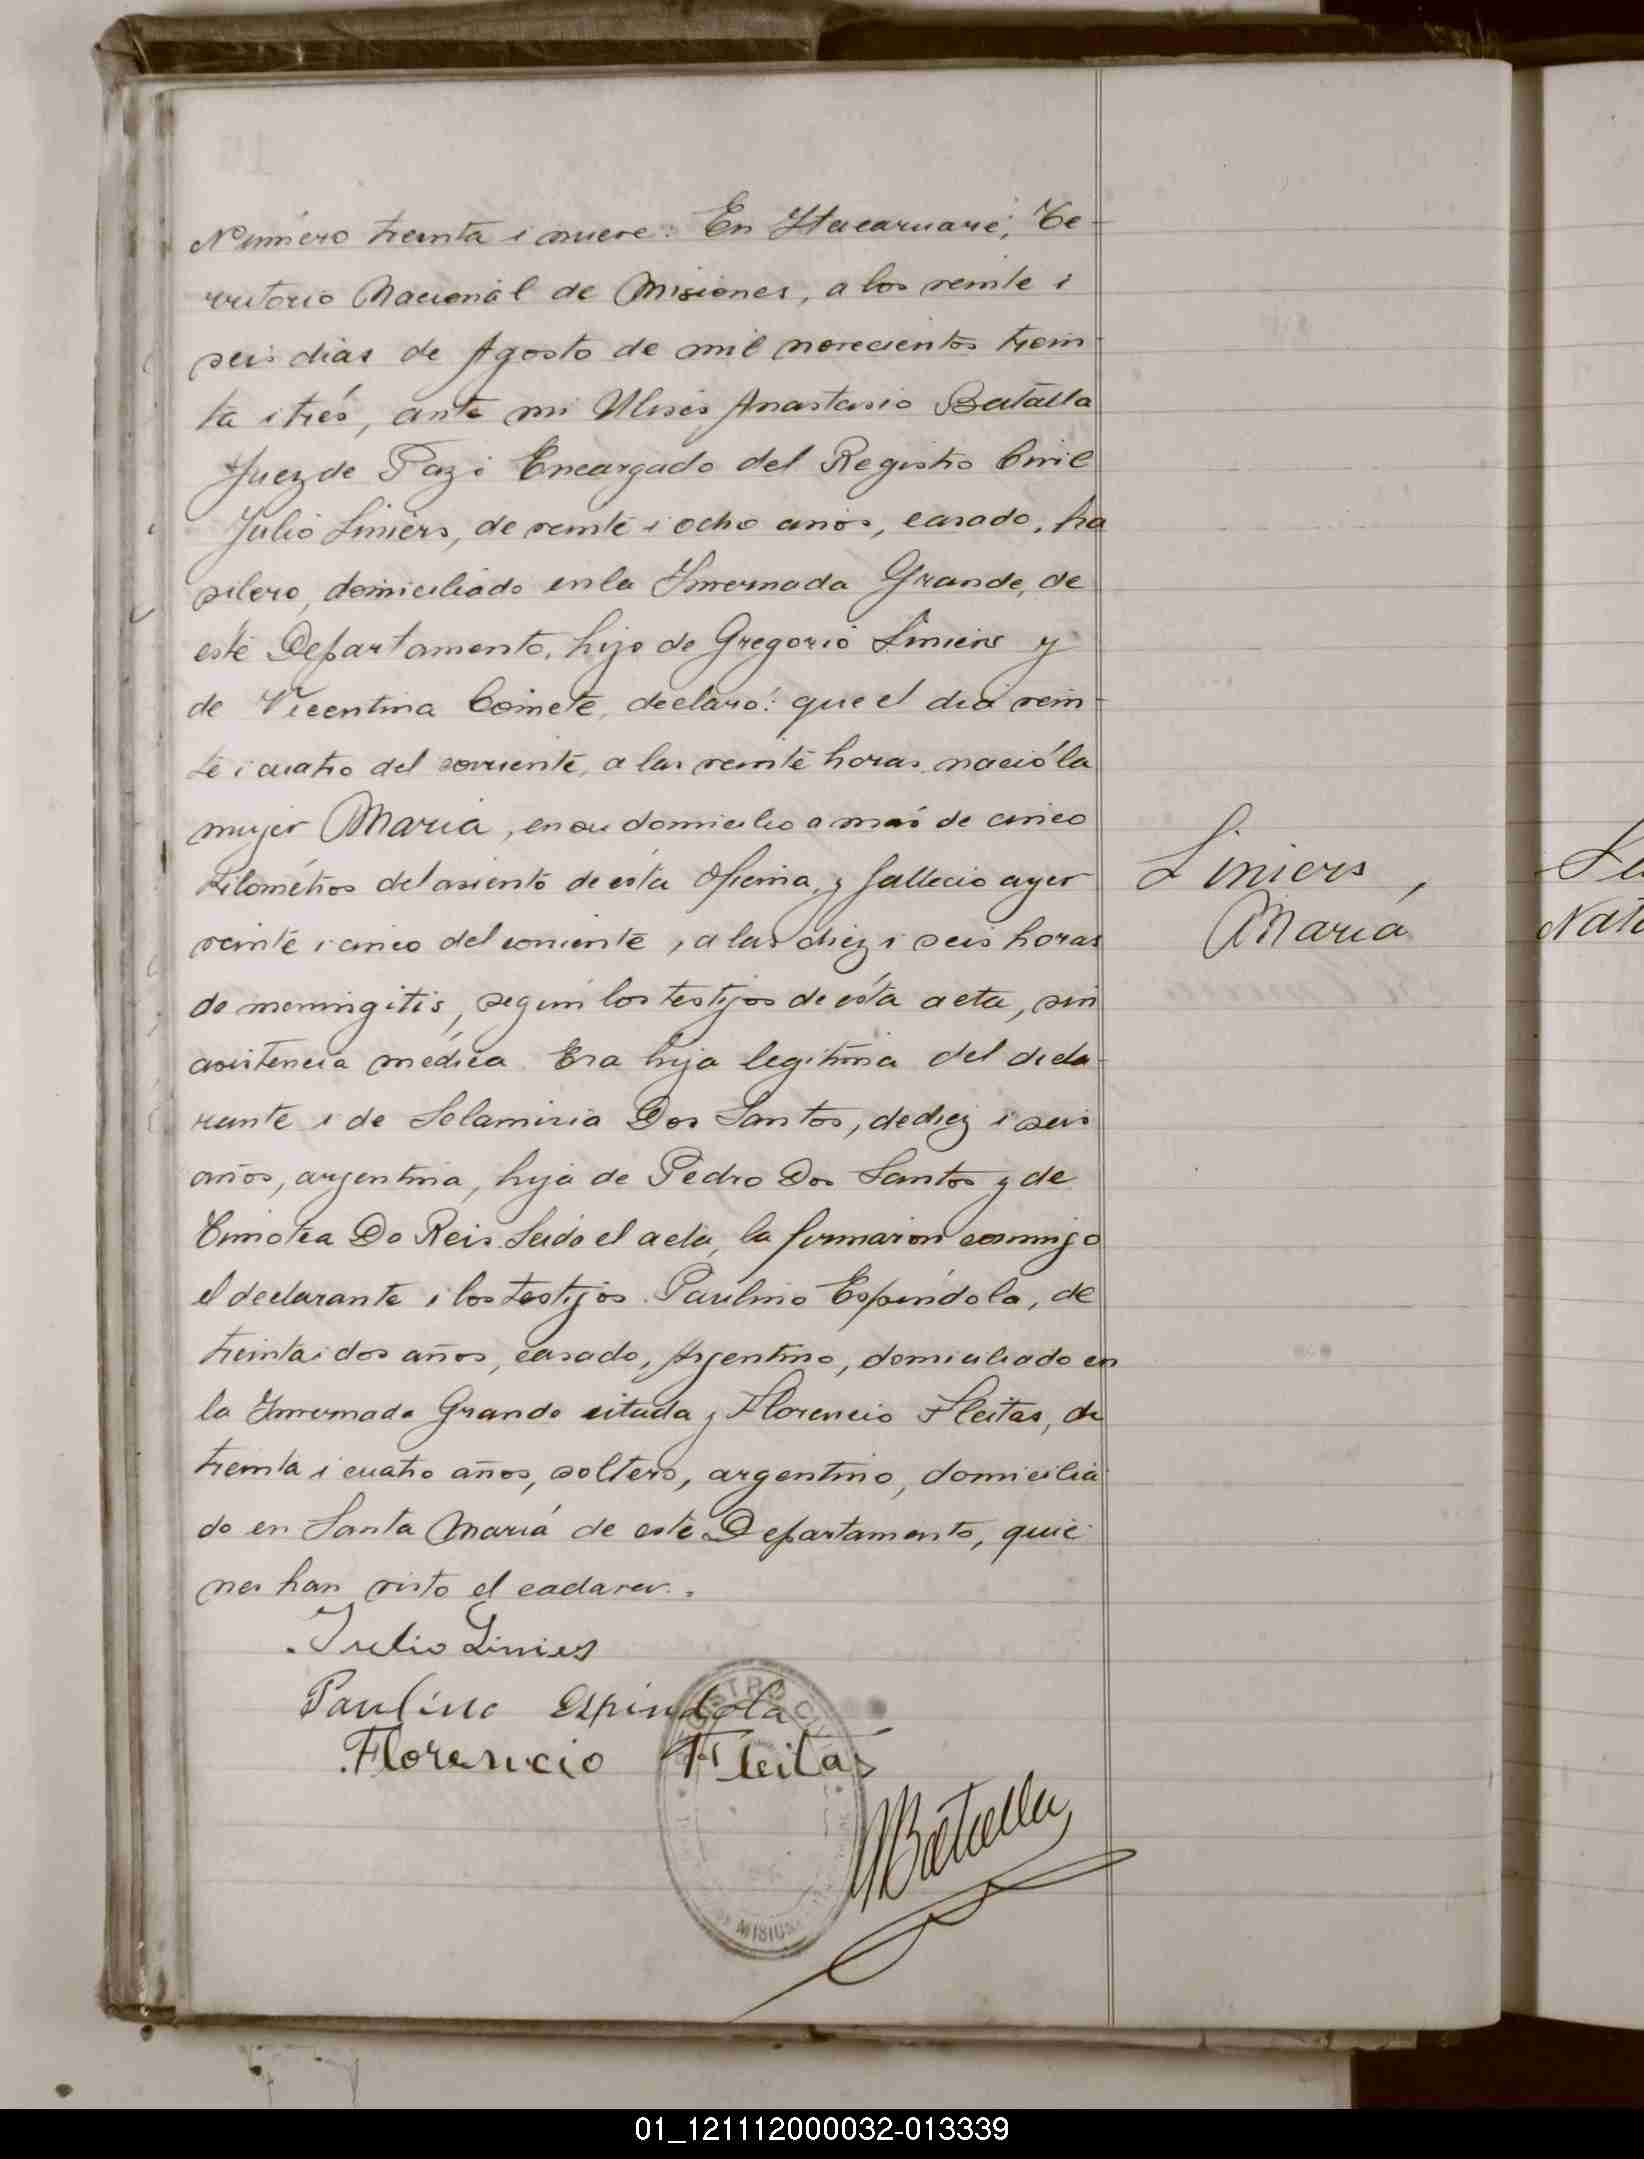 Número treinta i nueve: En Itacaruaré, Te-
rritorio Nacional de Misiones, a los veinte i
seis dias de Agosto de mil novecientos trein-
ta i trés, ante mi Ulises Anastasio Batalla
Juez de Paz i Encargado del Registro Civil
Julio Liniers, de veinte i ocho años, casado, bra
silero, domiciliado en la Invernada Grande, de
este Departamento, hijo de Gregorio Liniers y
de Vicentina declaró: que el dia vein-
te i cuatro del corriente, a las veinte horas nació la
mujer Maria, en su domicilio a mas de cinco
kilométros del asiento de esta oficina y fallecio ayer
veinte i cinco del corriente, a las diez i seis horas
de meningitis, segun los testijos de ésta acta, sin
asistencia médica. Era hija legitima del decla-
rante i de Dos Santos, de diez i seis
años, argentina, hija de Pedro Dos Santos y de
Timotea Do Reis. Leido el acta, la firmaron conmigo
el declarante i los testijos Paulino Espindola, de
treinta i dos años, casado, Argentino, domiciliado en
la Invernada Grande citada y Florencio Fleitas, de
treinta i cuatro años, soltero, argentino, domicilia
do en Santa Mariá de este Departamento, quie
nes han visto el cadaver.
Julio Linies
Paulino Espindola
Florencio Fleitas
Batalla
REGISTRO CIVIL
MISIONES
Liniers,
Mariá
01_121112000032-013339